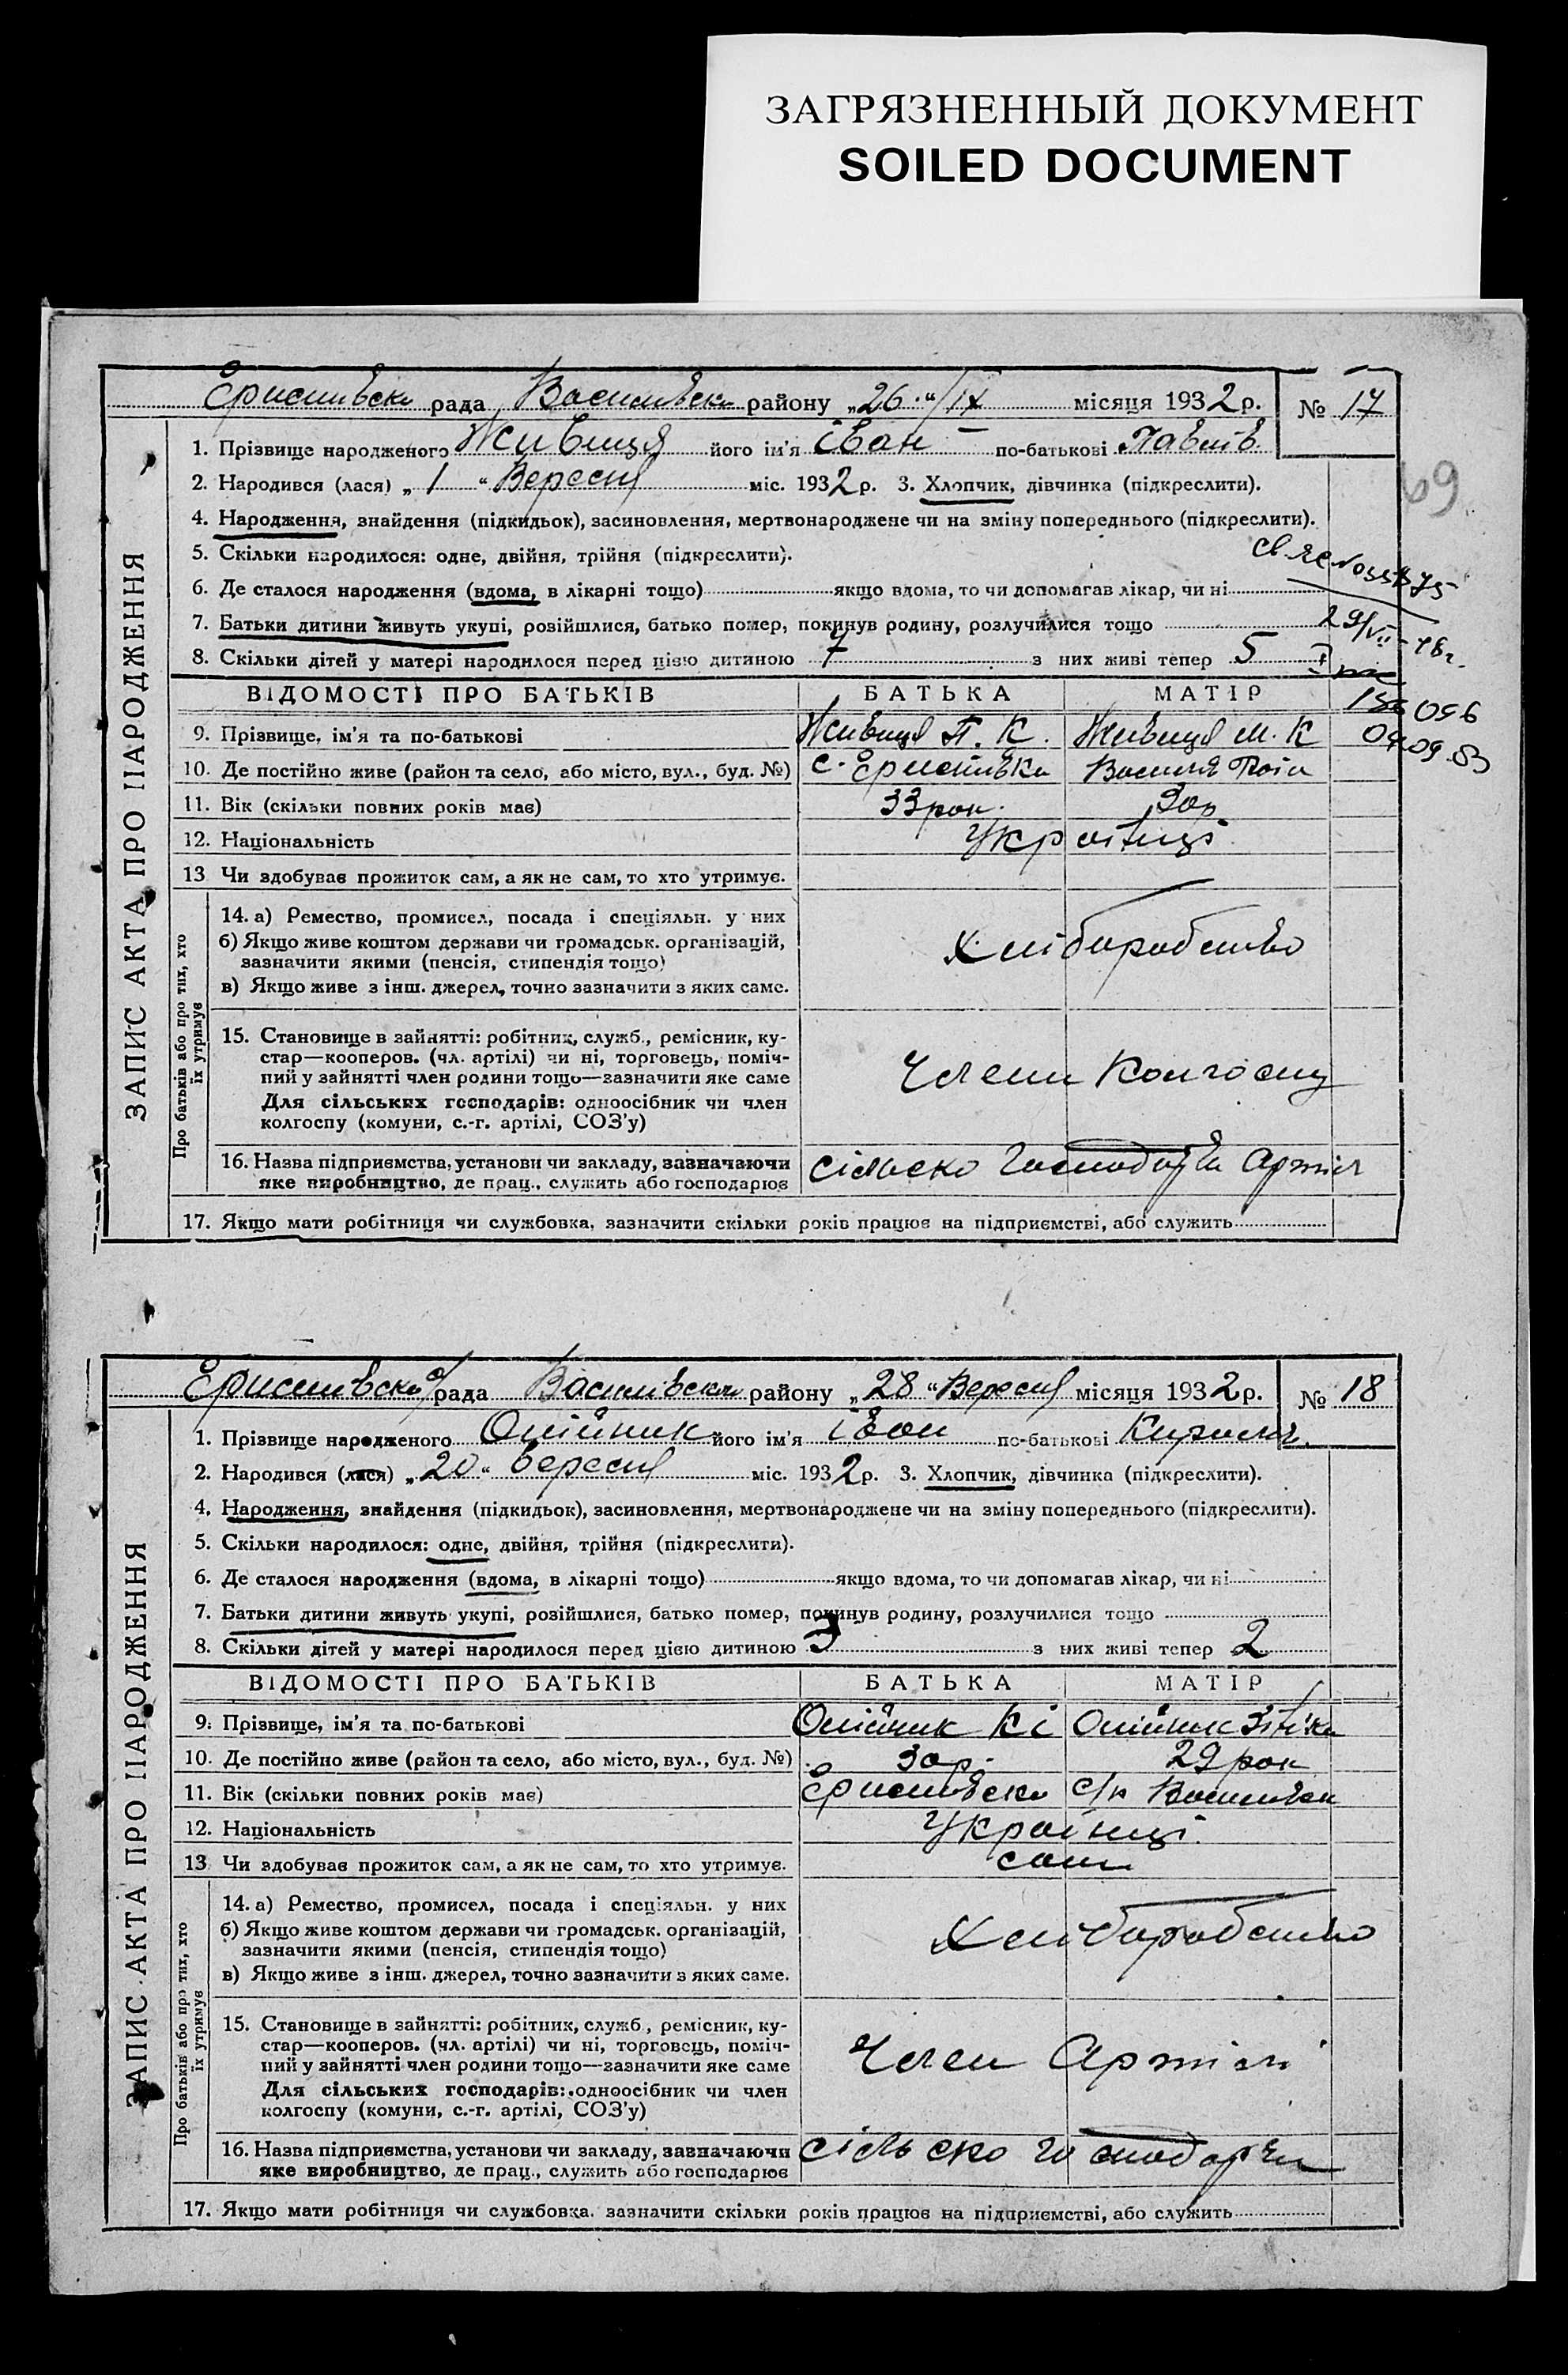 ЗАГРЯЗНЕННЫЙ ДОКУМЕНТ
SOILED DOCUMENT
ЗАПИС АКТА ПРО НАРОДЖЕННЯ
рада району „26“/IX місяця 1932 р. № 17
1. Прізвище народженого Живиця його ім'я Іван по-батькові Павлів
2. Народився (лася) „1“ Вересня міс. 1932 р. 3. Хлопчик, дівчинка (підкреслити).
69
4. Народження, знайдення (підкидьок), засиновлення, мертвонароджене чи на зміну попереднього (підкреслити).
5. Скільки народилося: одне, двійня, трійня (підкреслити).
6. Де сталося народження (вдома, в лікарні тощо) якщо вдома, то чи допомагав лікар, чи ні
7. Батьки дитини живуть укупі, розійшлися, батько помер, покинув родину, розлучилися тощо
8. Скільки дітей у матері народилося перед цією дитиною 7 з них живі тепер 5
ВІДОМОСТІ ПРО БАТЬКІВ БАТЬКА МАТІР
9. Прізвище, ім'я та по-батькові Живиця П. К. Живиця М. К
10. Де постійно живе (район та село, або місто, вул., буд. №) с. Єристівка
11. Вік (скільки повних років має) 33 рок. 30р
12. Національність Українці
13 Чи здобував прожиток сам, а як не сам, то хто утримує.
Про батьків або про тих, хто їх утримує
14. а) Ремество, промисел, посада і спеціяльн. у них
б) Якщо живе коштом держави чи громадськ. організацій,
зазначити якими (пенсія, стипендія тощо)
в) Якщо живе з інш. джерел, точно зазначити з яких саме.
Хліборобство
15. Становище в зайнятті: робітник, служб., ремісник, ку-
стар—кооперов. (чл. артілі) чи ні, торговець, поміч-
ний у зайнятті член родини тощо—зазначити яке саме
Для сільських господарів: одноосібник чи член
колгоспу (комуни, с.-г. артілі, СОЗ'у)
Члени Колгоспу
16. Назва підприємства, установи чи закладу, зазначаючи
яке виробництво, де прац., служить або господарює
17. Якщо мати робітниця чи службовка, зазначити скільки років працює на підприємстві, або служить
ЗАПИС АКТА ПРО НАРОДЖЕННЯ
рада району „28“ Вересня місяця 1932 р. № 18
1. Прізвище народженого Олійник його ім'я Іван по-батькові
2. Народився (лася) „20“ вересня міс. 1932 р. 3. Хлопчик, дівчинка (підкреслити).
4. Народження, знайдення (підкидьок), засиновлення, мертвонароджене чи на зміну попереднього (підкреслити).
5. Скільки народилося: одне, двійня, трійня (підкреслити).
6. Де сталося народження (вдома, в лікарні тощо) якщо вдома, то чи допомагав лікар, чи ні
7. Батьки дитини живуть укупі, розійшлися, батько помер, покинув родину, розлучилися тощо
8. Скільки дітей у матері народилося перед цією дитиною 3 з них живі тепер 2
ВІДОМОСТІ ПРО БАТЬКІВ БАТЬКА МАТІР
9. Прізвище, ім'я та по-батькові Олійник К І Олійник
10. Де постійно живе (район та село, або місто, вул., буд. №) 30р. 29 рок
11. Вік (скільки повних років має)
12. Національність Українці
13 Чи здобував прожиток сам, а як не сам, то хто утримує. сами
Про батьків або про тих, хто їх утримує
14. а) Ремество, промисел, посада і спеціяльн. у них
б) Якщо живе коштом держави чи громадськ. організацій,
зазначити якими (пенсія, стипендія тощо)
в) Якщо живе з інш. джерел, точно зазначити з яких саме.
Хліборобство
15. Становище в зайнятті: робітник, служб., ремісник, ку-
стар—кооперов. (чл. артілі) чи ні, торговець, поміч-
ний у зайнятті член родини тощо—зазначити яке саме
Для сільських господарів: одноосібник чи член
колгоспу (комуни, с.-г. артілі, СОЗ'у)
Член Артілі
16. Назва підприємства, установи чи закладу, зазначаючи
яке виробництво, де прац., служить або господарює
17. Якщо мати робітниця чи службовка. зазначити скільки років працює на підприємстві, або служить